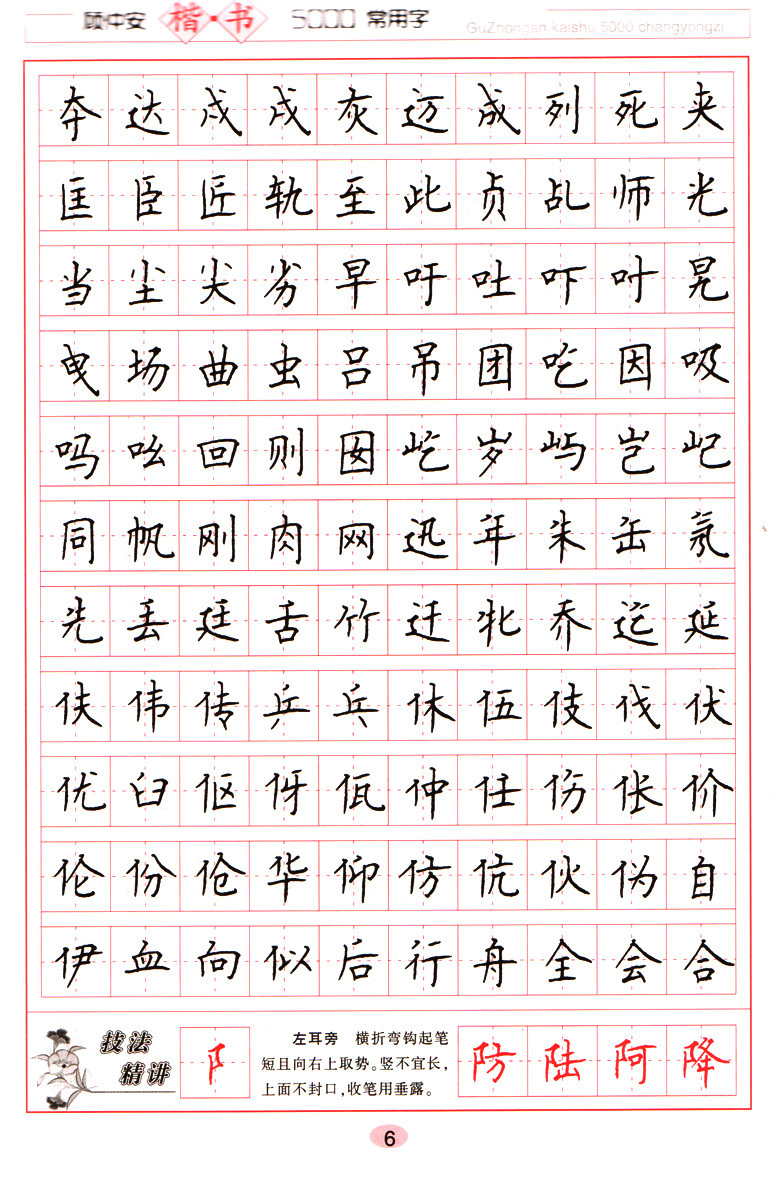 顾仲安 楷·书 5000 常用字 GuZhongan kaishu 5000 changyongzi
夺达戍戌灰迈成列死夹
匡臣匠轨至此贞乩师光
当尘尖劣早吁吐吓叶晃
曳场曲虫吕吊团吃因吸
吗吆回则囡屹岁屿岂屺
同帆刚肉网迅年朱缶氖
先丢廷舌竹迁牝乔迄延
伕伟传乒乓休伍伎伐伏
优臼伛伢佤仲任伤伥价
伦份伧华仰仿伉伙伪自
伊血向似后行舟全会合
技法精讲
阝
左耳旁 横折弯钩起笔
短且向右上取势。竖不宜长，
上面不封口，收笔用垂露。
防陆阿降
6